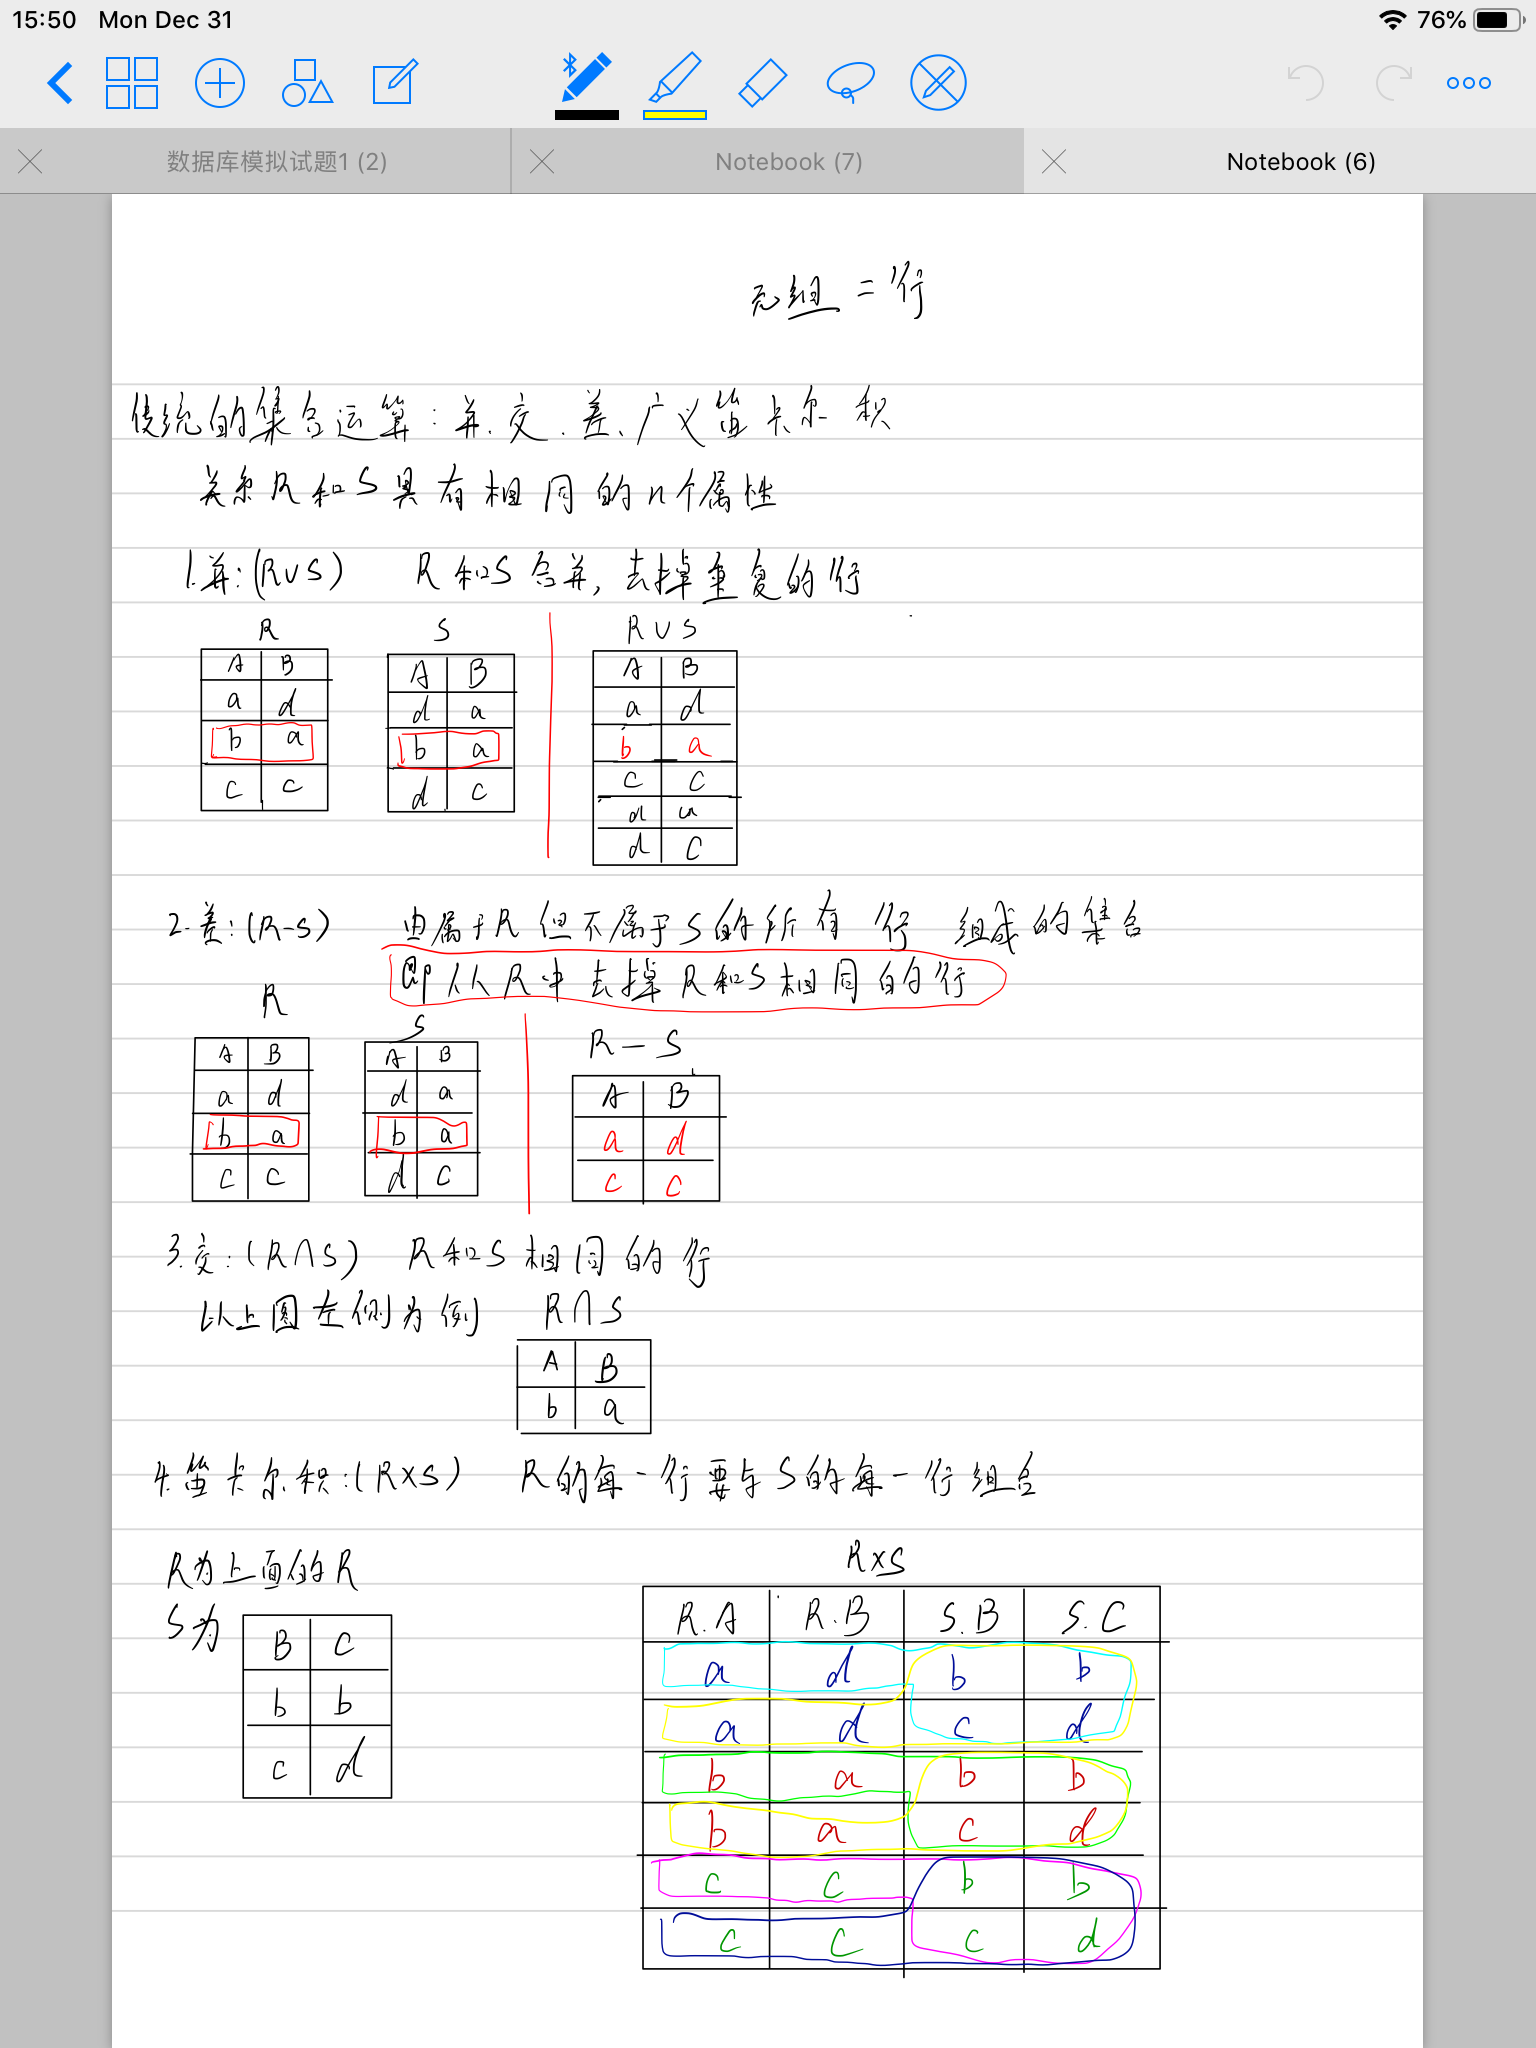 15:50 Mon Dec 31 76%
数据库模拟试题1 (2) Notebook (7) Notebook (6)
元组 = 行
传统的集合运算：并、交、差、广义笛卡尔积
关系R和S具有相同的n个属性
1.并：(R∪S) R和S合并，去掉重复的行
R S R∪S
A B A B A B
a d d a a d
b a b a b a
c c d c c c
d a
d c
2.差：(R-S) 由属于R但不属于S的所有行组成的集合
即从R中去掉R和S相同的行
R S R-S
A B A B A B
a d d a a d
b a b a c c
c c d c
3.交：(R∩S) R和S相同的行
以上图左侧为例 R∩S
A B
b a
4.笛卡尔积：(R×S) R的每一行要与S的每一行组合
R为上面的R
S为
B C
b b
c d
R×S
R.A R.B S.B S.C
a d b b
a d c d
b a b b
b a c d
c c b b
c c c d